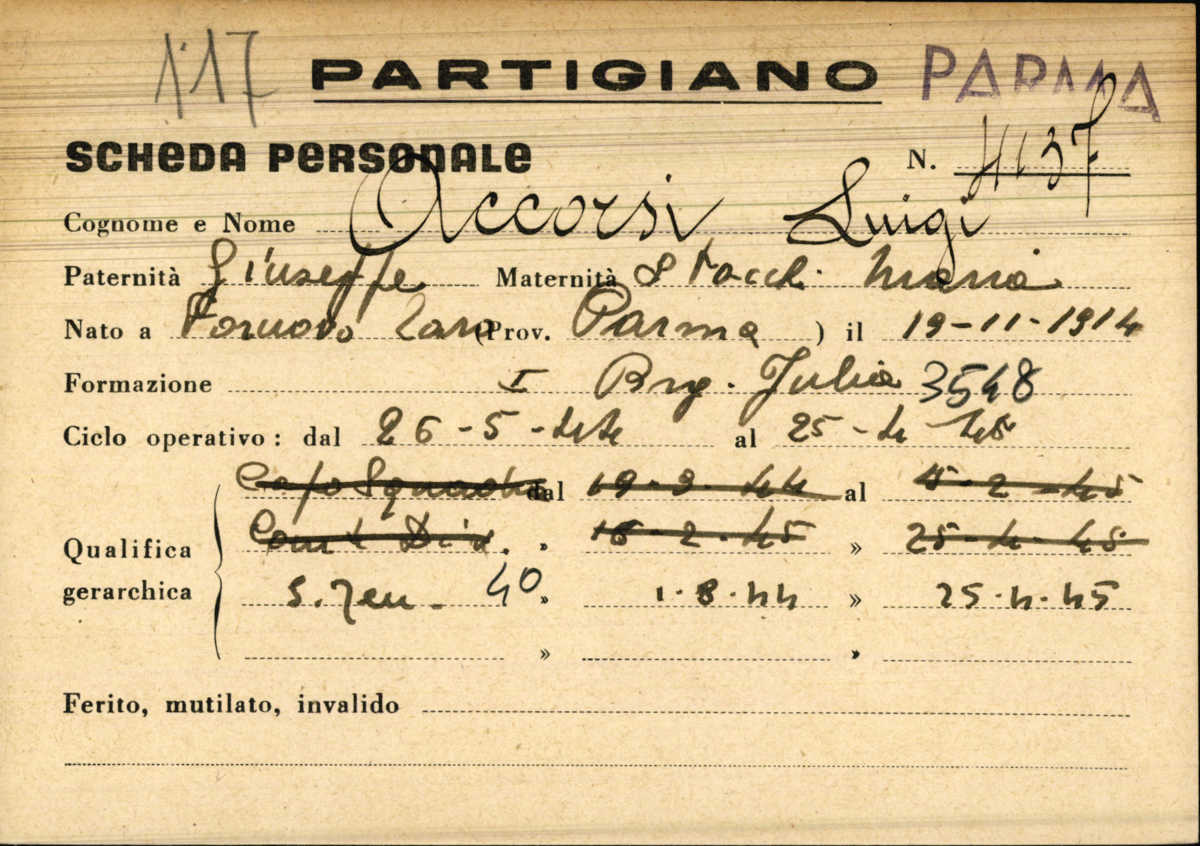 117 PARTIGIANO PARMA
SCHEDA PERSONALE N. 4137
Cognome e Nome Accorsi Luigi
Paternità Giuseppe Maternità Stocchi Maria
Nato a Fornovo Taro (Prov. Parma ) il 19-11-1914
Formazione I Brg. Julia 3548
Ciclo operativo: dal 26-5-44 al 25-4-45
Capo Squadra dal 19-9-44 al 5-2-45
Qualifica Com.te Dis. » 16-2-45 » 25-4-45
gerarchica S. Ten. 40 » 1-8-44 » 25-4-45
» »
Ferito, mutilato, invalido